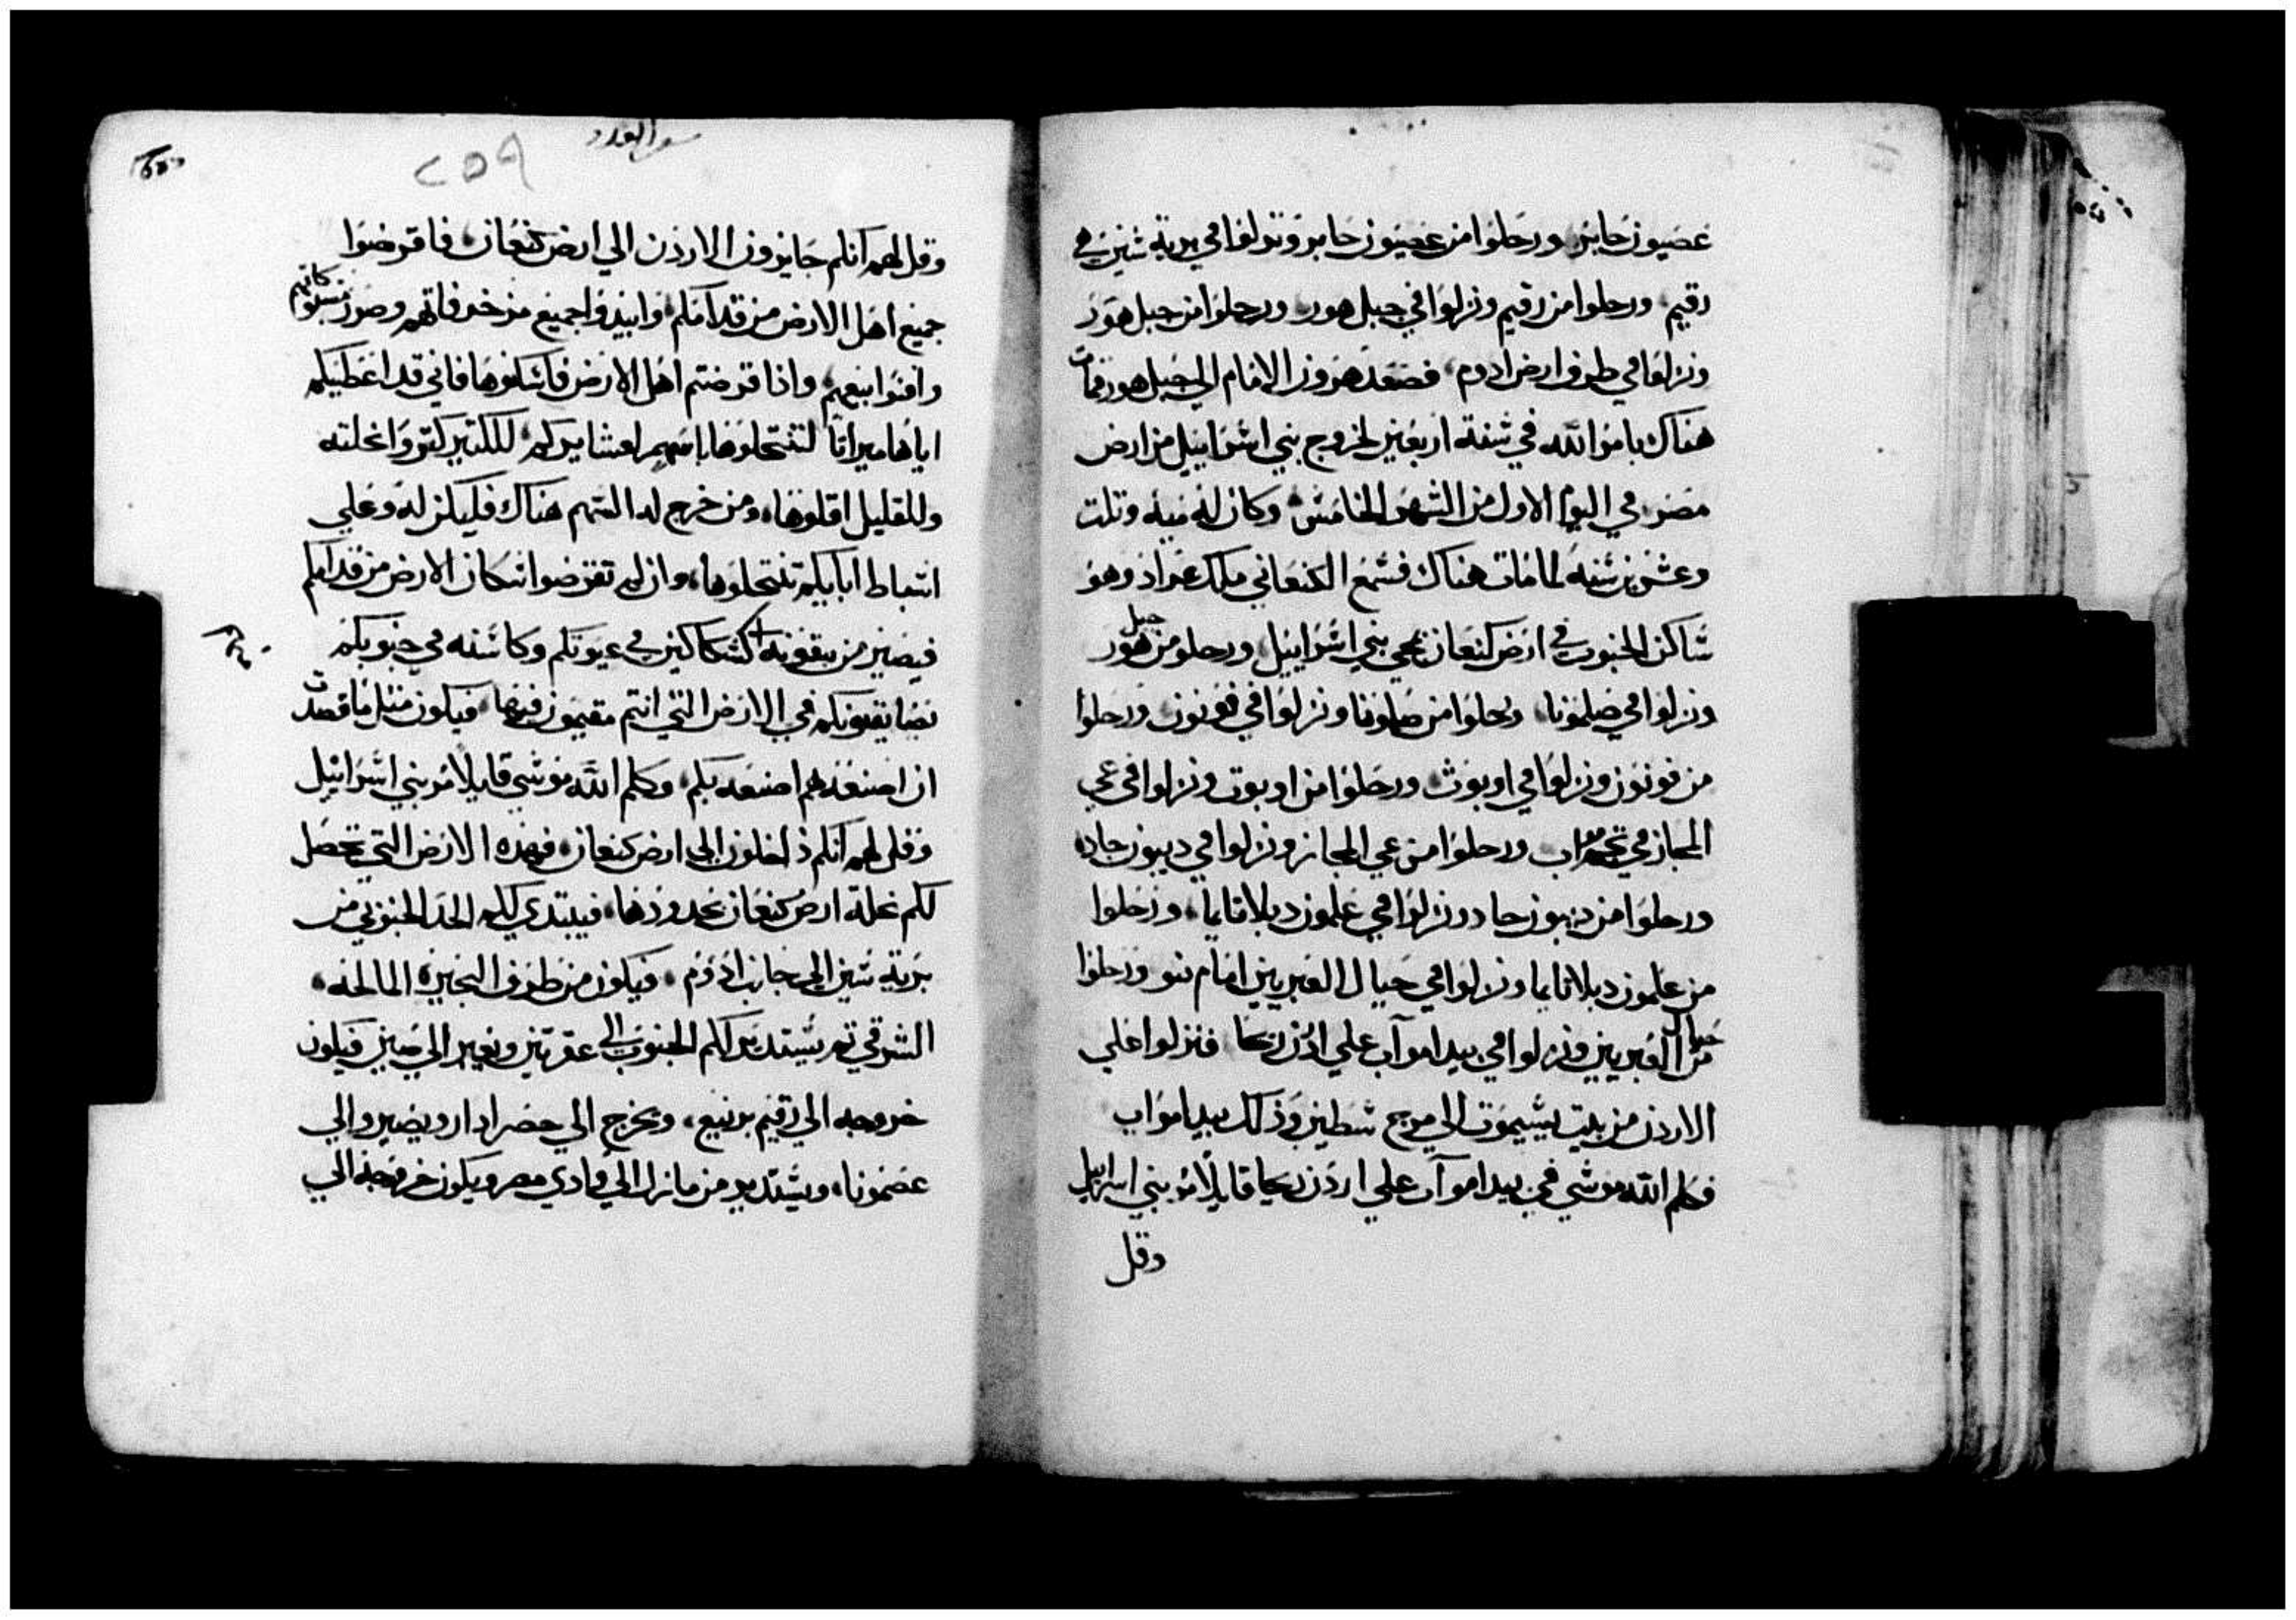 عصيون حابر ورحلوا من عصيون حابر ونزلوا في برية شين هي
رقيم ورحلوا من رقيم ونزلوا في جبل هور ورحلوا من جبل هور
ونزلوا في طرف ارض ادوم فصعد هرون الامام الي جبل هور فمات
هناك بامر الله في سنة اربعين لخروج بني اسراييل من ارض
مصر في اليوم الاول من الشهر الخامس وكان له ميه وتلت
وعشرين سنه لما مات هناك فسمع الكنعاني ملك عراد وهو
ساكن الجنوب في ارض كنعان بمجي بني اسراييل ورحلو من جبل هور
ونزلوا في صلمونا ورحلوا من صلمونا ونزلوا في فونون ورحلوا
من فونون ونزلوا في اوبوث ورحلوا من اوبوت ونزلوا في عي
المجاز في تخم مواب ورحلوا من عي المجاز ونزلوا في ديبون جاد
ورحلوا من ديبون جاد ونزلوا في علمون دبلاتايما ورحلوا
من علمون دبلاتايما ونزلوا في جبال العبريين امام نبو ورحلوا
من جبال العبريين ونزلوا في بيدا موآب علي اردن ريحا فنزلوا علي
الاردن من بيت يشيموت الي مرج شطين وذلك بيدا مواب
فكلم الله موسي في بيدا موآب علي اردن ريحا قايلا مر بني اسراييل
وقل
سفر العدد
٢٥٩
وقل لهم انكم جايزون الاردن الي ارض كنعان فاقرضوا
جميع اهل الارض من قدامكم وابيدوا جميع مزخرفاتهم وصور مسبوكاتهم
وافنوا بيعهم واذا قرضتم اهل الارض فاسكنوها فاني قد اعطيتكم
اياها ميراثا لتنتحلوها باسهم لعشايركم للكتير كتروا نحلته
وللقليل اقلوها ومن خرج له السهم هناك فليكن له وعلي
اسباط ابايكم تنتحلوها وان لم تقرضوا سكان الارض من قدامكم
فيصير من بقونه كسكاكين في عيونكم وكاسنه في جنوبكم
يضايقونكم في الارض التي انتم مقيمون فيها فيكون مثل ما قصدت
ان اصنعه لهم اصنعه بكم وكلم الله موسي قايلا مر بني اسراييل
وقل لهم انكم داخلون الي ارض كنعان فهذه الارض التي تحصل
لكم نحلة ارض كنعان بحدودها فيبتدي لكم الحد الجنوبي من
برية سين الي جانب ادوم فيكون من طرف البحيرة المالحه
الشرقي تم يستدير لكم الجنوب الي عقربين ويعبر الي صين فيكون
خروجه الي رقيم برنيع ويخرج الي حصر ادار ويصير والي
عصمونا ويستدير من مانزل الي وادي مصر ويكون خروجه الي